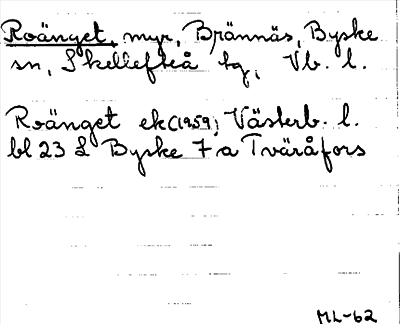 Roänget, myr, Brännäs, Byske
sn, Skellefteå tg, Vb. l.
Roänget ek (1959) Västerb. l.
bl 23 L Byske 7 a Tväråfors
ML-62